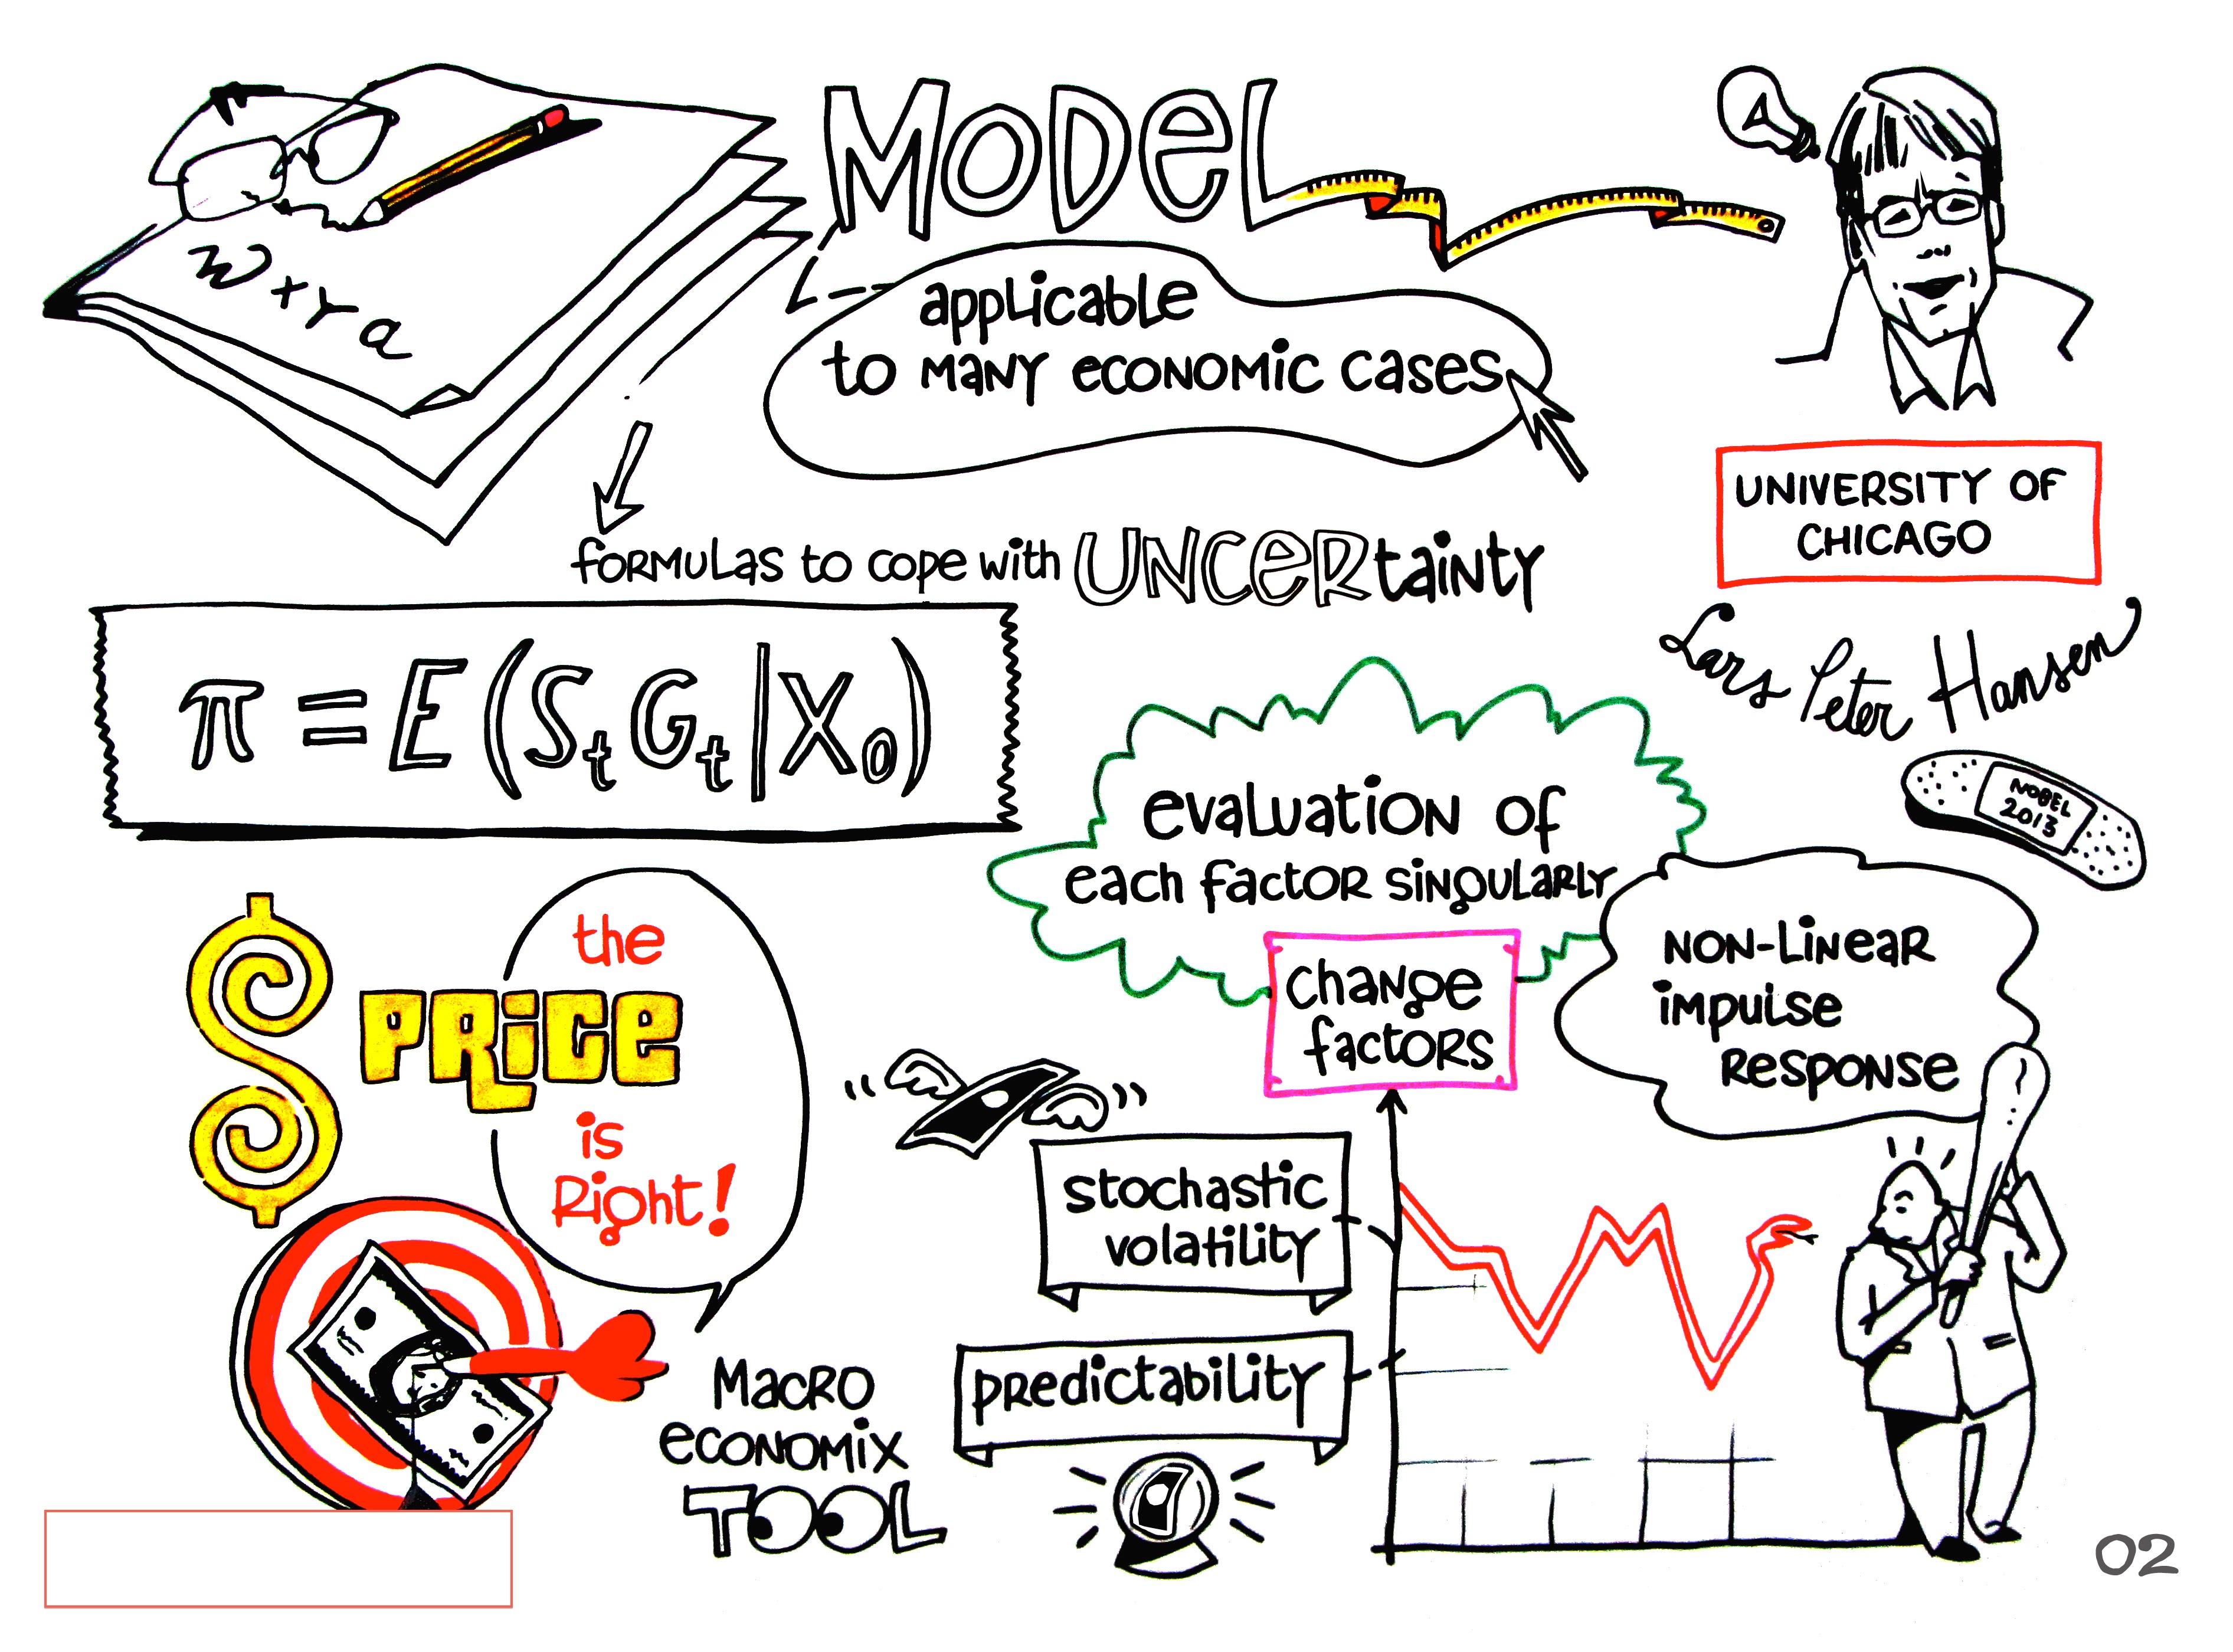 MODEL
applicable
to many economic cases
w + r a
formulas to cope with UNCERtainty
π = E (St Gt | X0)
UNIVERSITY OF
CHICAGO
Lars Peter Hansen
NOBEL
2013
evaluation of
each factor singularly
change
factors
NON-LINEAR
impulse
RESPONSE
the
PRICE
is
Right!
stochastic
volatility
predictability
MACRO
economix
TOOL
02